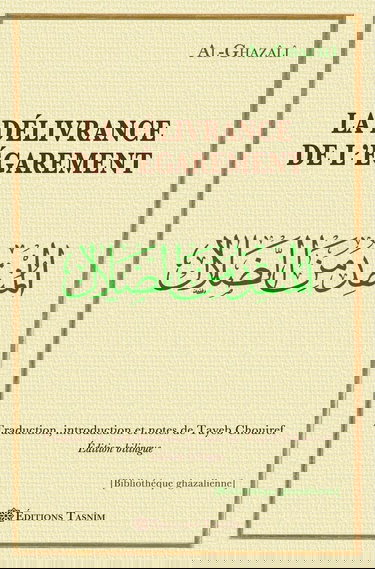 AL-GHAZÂLÎ
LA DÉLIVRANCE
DE L'ÉGAREMENT
المُنْقِذُ مِنَ الضَّلَالِ
Traduction, introduction et notes de Tayeb Chouiref
Édition bilingue
|Bibliothèque ghazâlienne|
ÉDITIONS TASNÎM